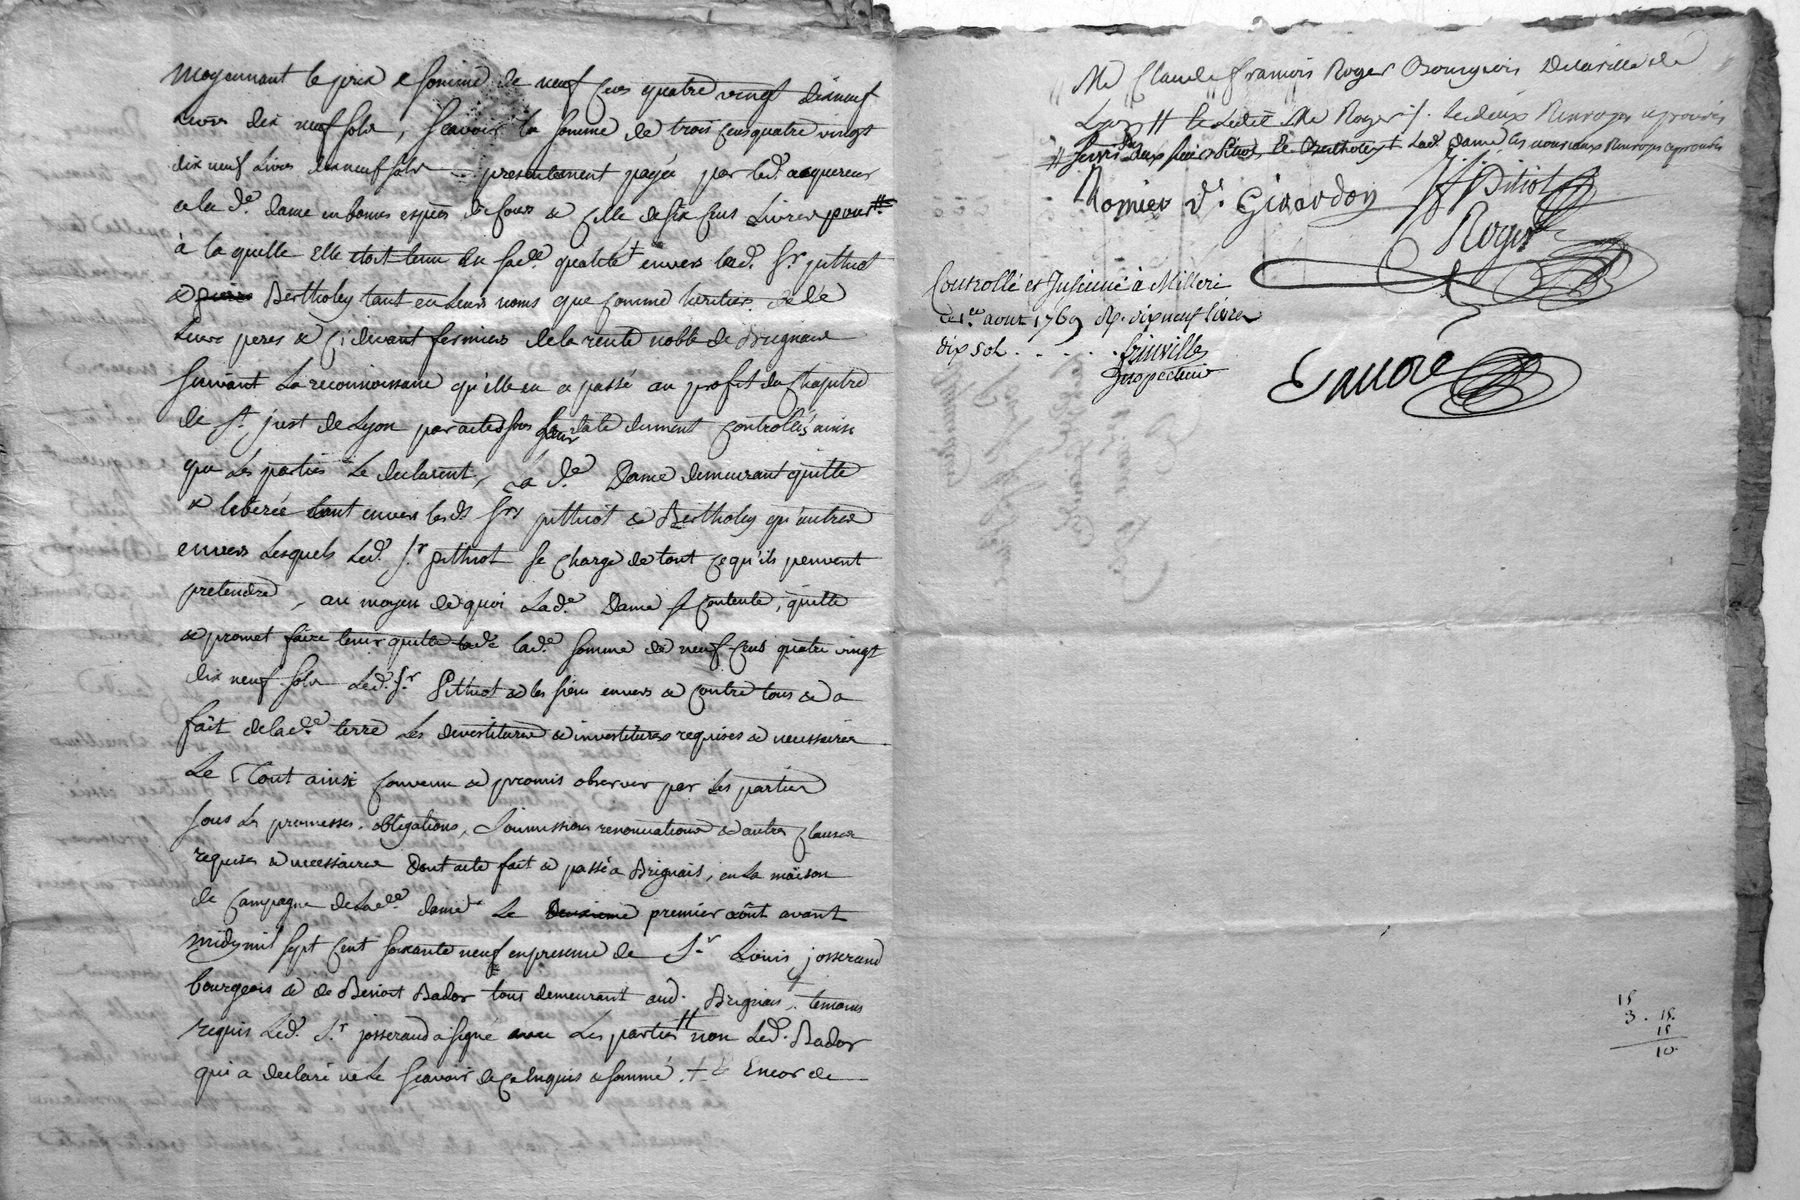 moyennant le prix & somme de neuf cens quatre vingt dixneuf
livres dix neuf sols, scavoir la somme de trois cens quatre vingt
dix neuf livres dixneuf sols presentement payée par led. acquereur
a la de. dame en bonnes espèces de cours & celle de six cens livres pour
à la quelle elle etoit tenue en sade. qualité + envers led. Sr. pithiot
& Bertholey tant en leurs noms que comme heritiers de
leurs peres & cidevant fermiers de la rente noble de Brignais
suivant la reconnoissance qu'elle en a passé au profit du Chapitre
de St. just de Lyon par actes sous leur date dument controllés ainsi
que les parties le declarent, la de. Dame demeurant quitte
& liberée tant envers lesds. Srs. pithiot & Bertholey qu'autres
envers lesquels led. Sr. pithiot se charge de tout ce qu'ils peuvent
pretendre, au moyen de quoi lade. Dame se contente, quitte
& promet faire tenir quitte de lade. somme de neuf cens quatre vingt
dix neuf sols led. Sr. Pithiot & les siens envers & contre tous & a
fait de lade. terre les devestitures & investitures requises & necessaires
Le Tout ainsi convenu & promis observer par les parties
sous les promesses, obligations, soumissions renonciations & autres clauses
requises & necessaires Dont acte fait & passé a Brignais, en la maison
de campagne de lade. dame le deuxieme premier août avant
midy mil sept cent soixante neuf en presence de Sr. Louis josserand
bourgeois & de Benoit Bador tous demeurant aud. Brignais, temoins
requis led. Sr. josserand a signé avec les parties # non led. Bador
qui a declaré ne le scavoir de ce enquis & sommé. + & Encor de
Me Claude François Roger Bourgeois de la ville de
Lyon # & ledit Me Roger les deux Renvoys aprouvés
lad. dame les nouveaux Renvoys aprouvés
Romier de. Girardon Pitiot
Roger
Controllé et Insinué à Milleri
ce 1er aout 1769 R. dix neuf livres
dix sols . . . . . frinville
Inspecteur
15
3 . 15
15
10